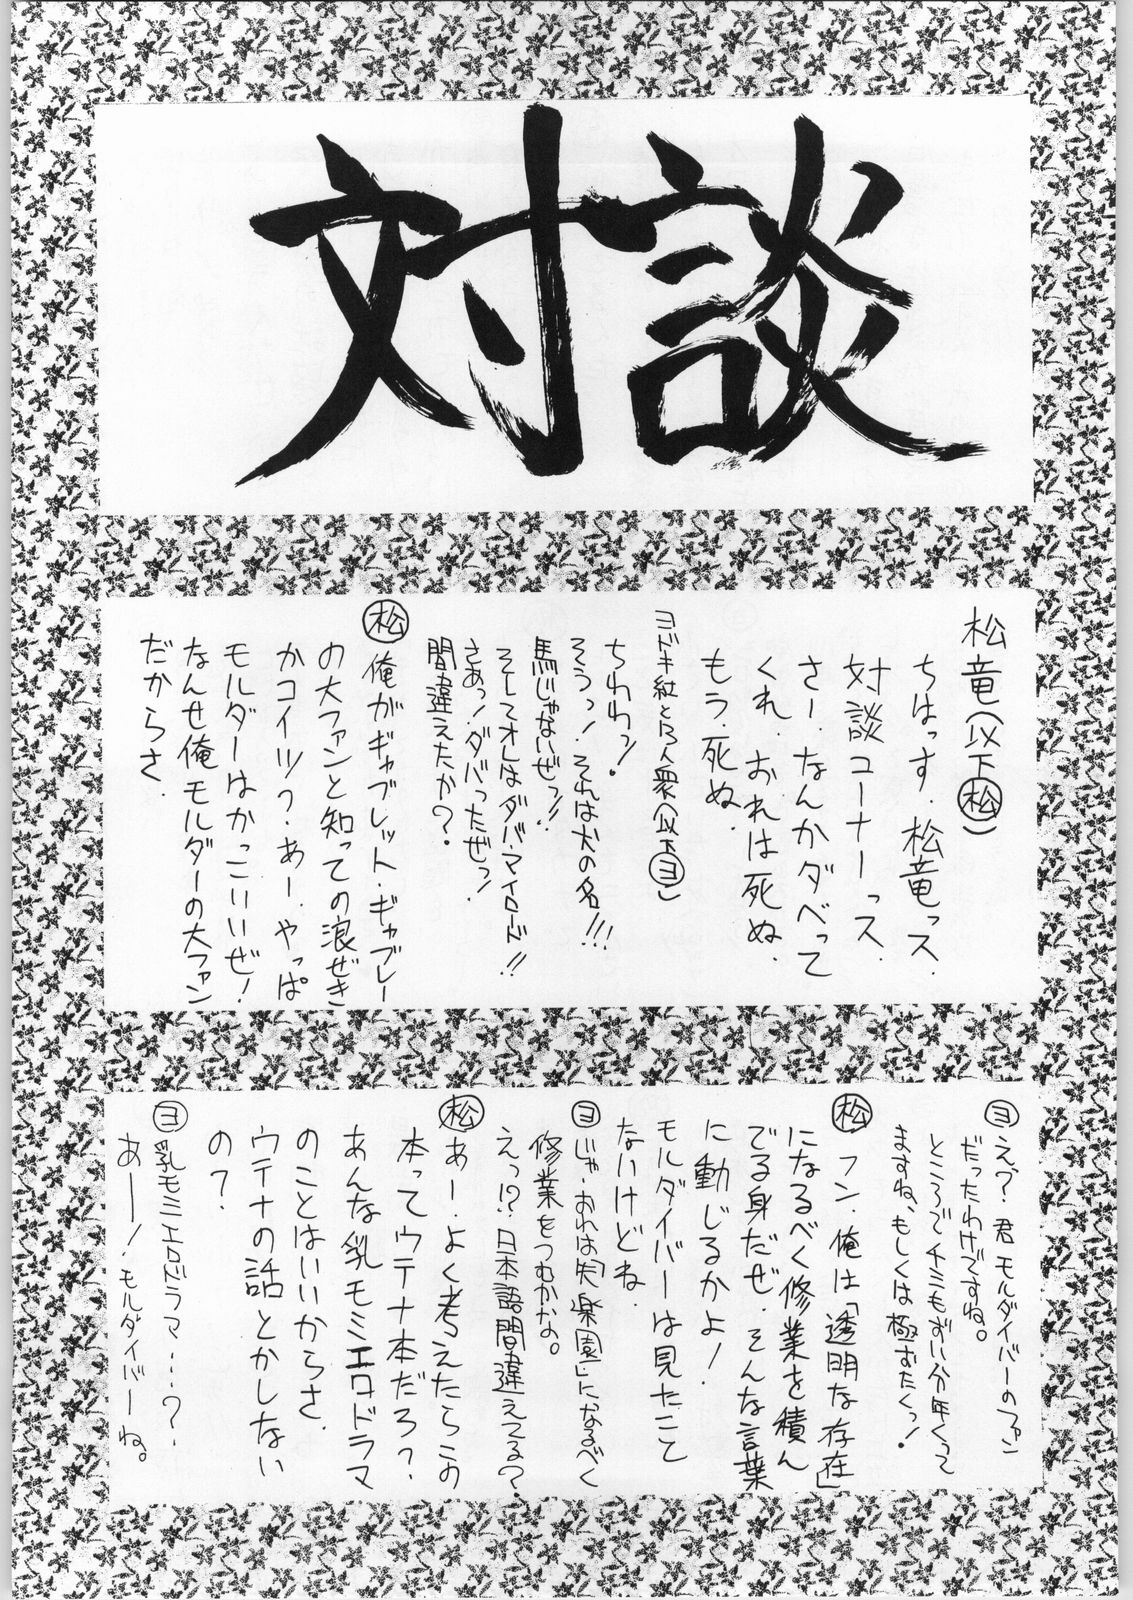 対談
松竜（以下松）
ちはっす．松竜っス．
対談コーナーっス．
さー．なんかダベって
くれ．おれは死ぬ．
もう．死ぬ．
ちわわっ！
そうっ！それは犬の名!!!
馬じゃないぜっ!!
そしてオレはダバ・マイロード!!
さあっ！ダバったぜっ！
間違えたか？
松 俺がギャブレット・ギャブレー
の大ファンと知っての浪ぜき
かコイツ？．あー．やっぱ
モルダーはかっこいいぜ！
なんせ俺モルダーの大ファン
だからさ．
ヨ えっ？君モルダイバーのファン
だったわけですね。
ところでチミもずい分年くって
ますね、もしくは極ずたくっ！
松 フン．俺は「透明な存在」
になるべく修業を積ん
でる身だぜ．そんな言葉
に動じるかよ！
モルダイバーは見たこと
ないけどね．
ヨ じゃ・おれは「失楽園」になるべく
修業をつむかな。
えっ!?日本語間違えてる？
松 あー．よく考えたらこの
本ってウテナ本だろ？．
あんな乳モミエロドラマ
のことはいいからさ．
ウテナの話とかしない
の？．
ヨ 乳モミエロドラマ……？
あ——！モルダイバーね。